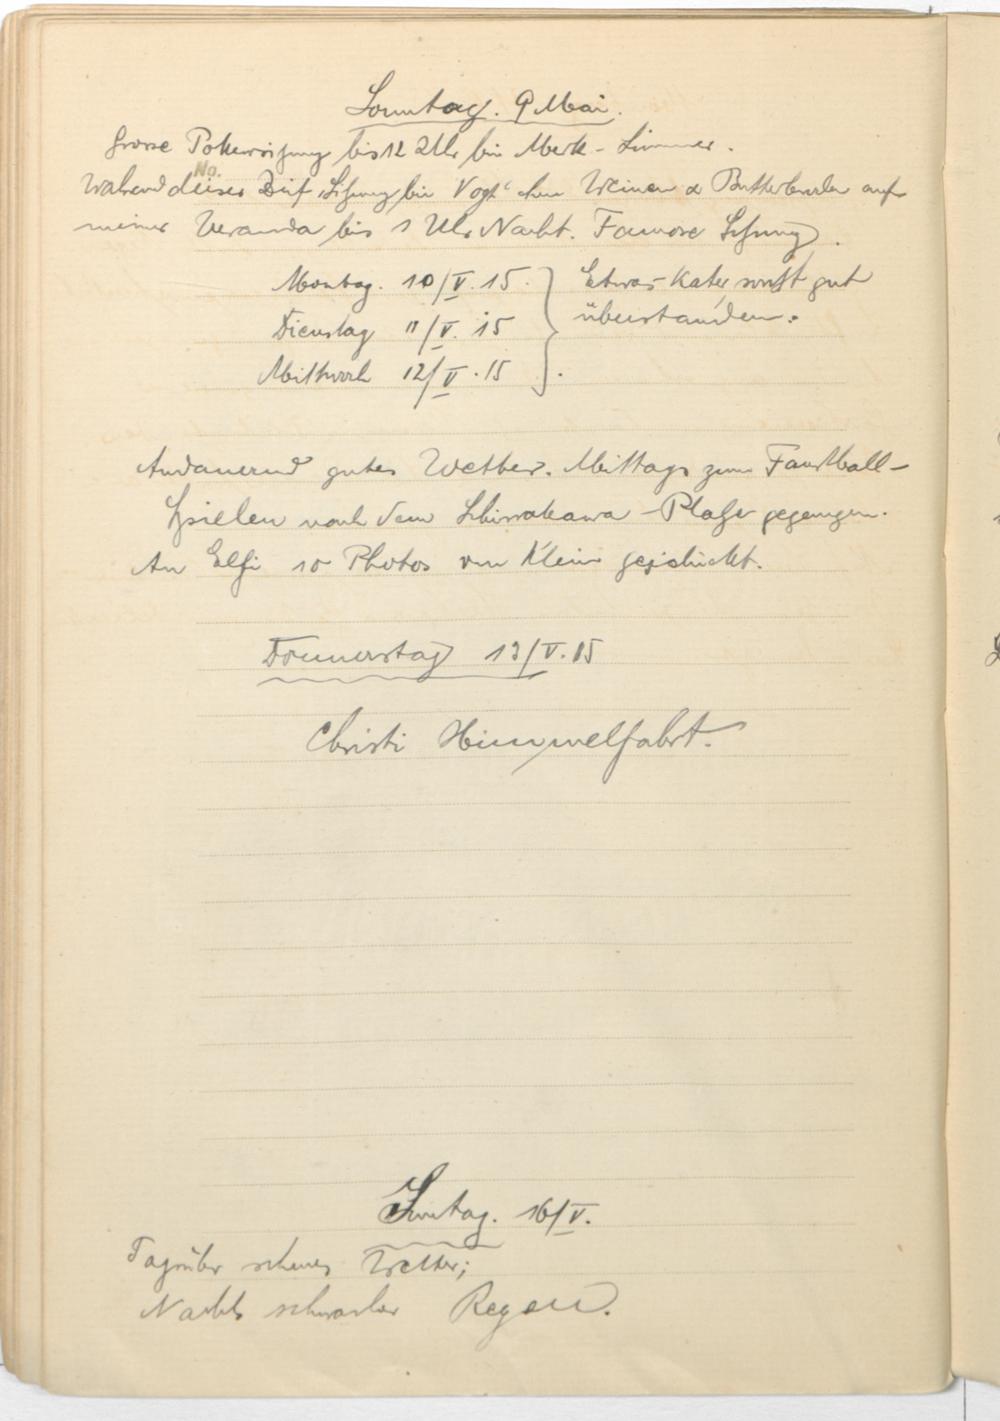 Sonntag. 9 Mai.
Grosse Pokersitzung bis 12 Uhr bei Merk-Simmer.
Während dieser No. Sitzung bei Vogt Weinen & Butter auf
meiner Veranda bis 1 Uhr Nacht. Famose Sitzung.
Montag. 10/V. 15. Etwas Kater, sonst gut
Dienstag 11/V. 15 überstanden.
Mittwoch 12/V. 15.
Andauernd gutes Wetter. Mittags zum Faustball-
spielen nach dem Platze gegangen.
An Elfi 10 Photos von Klein geschickt.
Donnerstag 13/V. 15
Christi Himmelfahrt.
Sontag. 16/V.
Tagsüber schönes Wetter;
Nachts schwacher Regen.